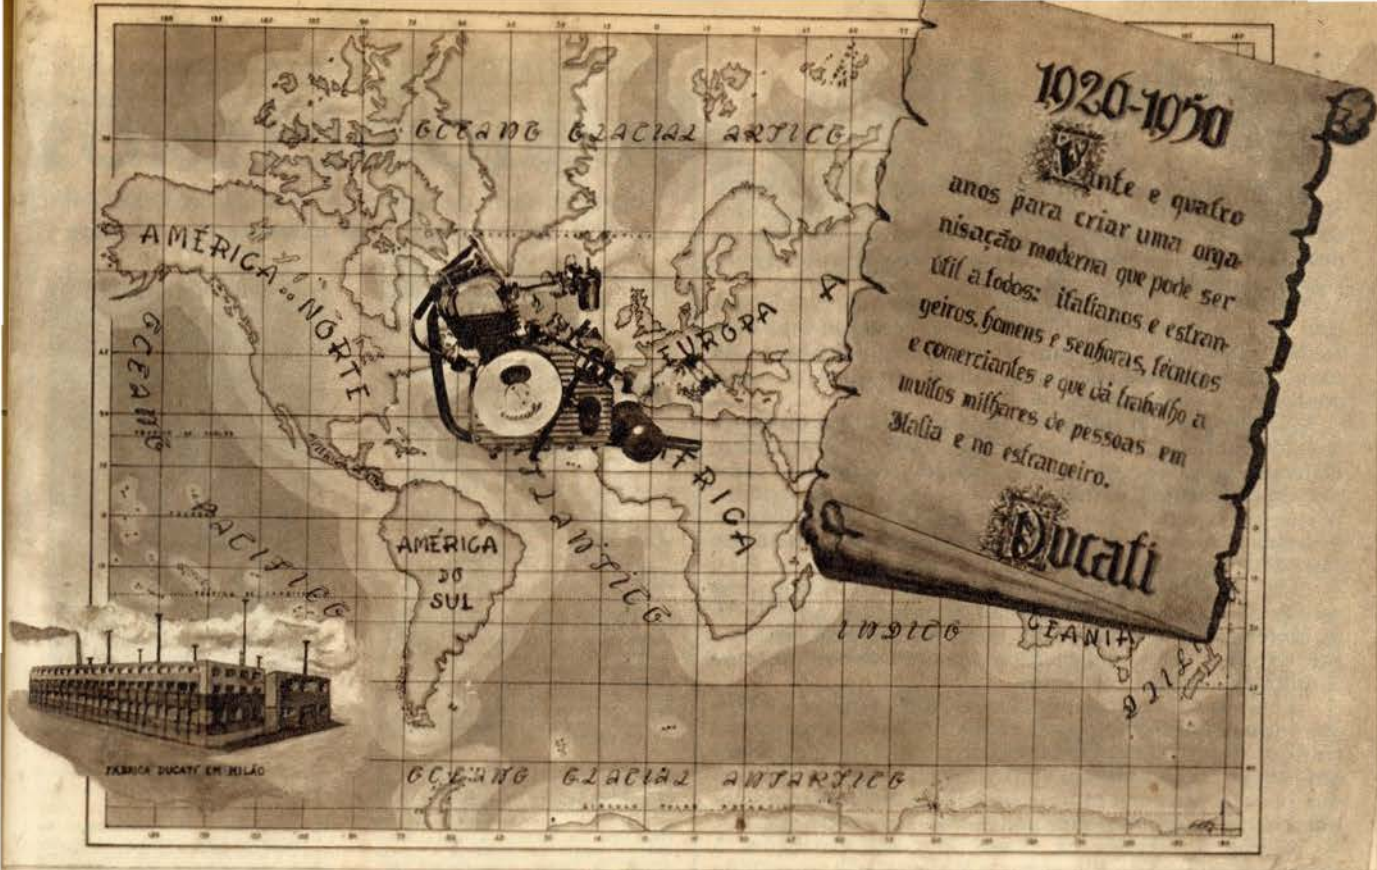 1926-1950
Vinte e quatro
anos para criar uma orga-
nisação moderna que pode ser
útil a todos: italianos e estran-
geiros, homens e senhoras, técnicos
e comerciantes e que dá trabalho a
muitos milhares de pessoas em
Italia e no estrangeiro.
Ducati
OCEANO GLACIAL ARTICO
AMÉRICA DO NORTE
EUROPA
A
OCEANO
PACIFICO
ATLANTICO
AFRICA
AMÉRICA
DO
SUL
INDICO
OCEANIA
FÁBRICA DUCATI EM MILÃO
OCEANO GLACIAL ANTARTICO